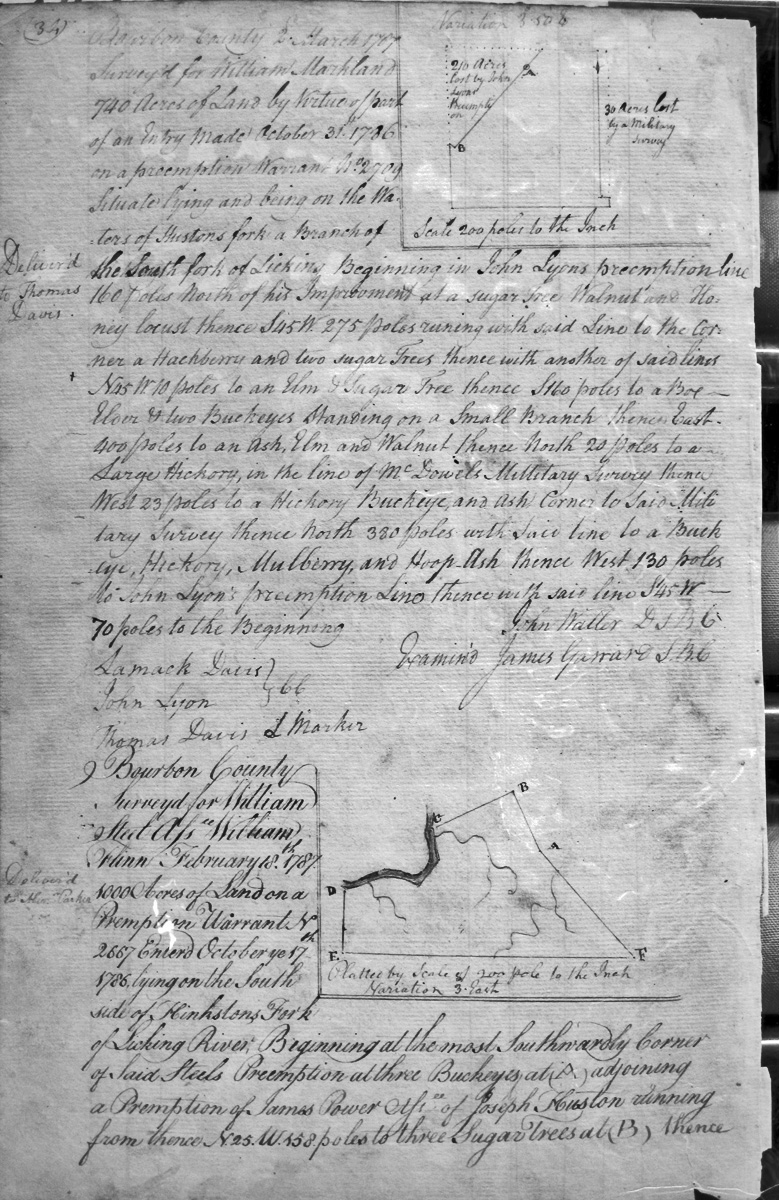 34
Bourbon County 2d March 1787
Survey'd for William Markland
740 Acres of Land by Virtue of part
of an Entry Made October 31. 1786
on a preemption Warrant No 2709
Situate lying and being on the Wa-
-ters of Hustons fork a Branch of
Variation 3.50 E
210 Acres
Lost by John
Lyons
Preempti
on
B
30 Acres Lost
by a Military
Survey
Scale 200 poles to the Inch
Deliver'd
to Thomas
Davis
the South fork of Licking Beginning in John Lyons preemption line
160 Poles North of his Improvement at a sugar Tree Walnut and Ho-
ney locust thence S45W. 275 poles runing with said Line to the Cor-
ner a Hackberry and two sugar Trees thence with another of said lines
N45W 10 poles to an Elm & Sugar Tree thence S160 poles to a Box
Elder & two Buckeyes Standing on a Small Branch thence East
400 poles to an Ash, Elm and Walnut thence North 20 poles to a
Large Hickory, in the line of McDowels Millitary Survey thence
West 23 poles to a Hickory Buckeye, and Ash Corner to Said Mili
tary Survey thence North 380 poles with Said line to a Buck
-eye, Hickory, Mulberry, and Hoop-Ash thence West 130 poles
to John Lyon's preemption Line thence with said line S45W
70 poles to the Beginning
John Waller D S B C
Examin'd James Garrard S B C
Lamack Davis }
John Lyon } CC
Thomas Davis Marker
Bourbon County
Survey'd for William
Steel Assee William
Flinn February 18th 1787
1000 Acres of Land on a
Premption Warrant No
2667 Enterd October ye 17th
1786, lying on the South
side of Hinkstons Fork
Deliver'd
B
C
A
D
E
F
Platted by Scale of 200 pole to the Inch
Variation 3. East
of Licking River, Beginning at the most Southwardly Corner
of Said Steels Preemption at three Buckeyes, at (A.) adjoining
a Premption of James Power Assee of Joseph Huston running
from thence N.25.W. 158 poles to three Sugar trees at (B) thence